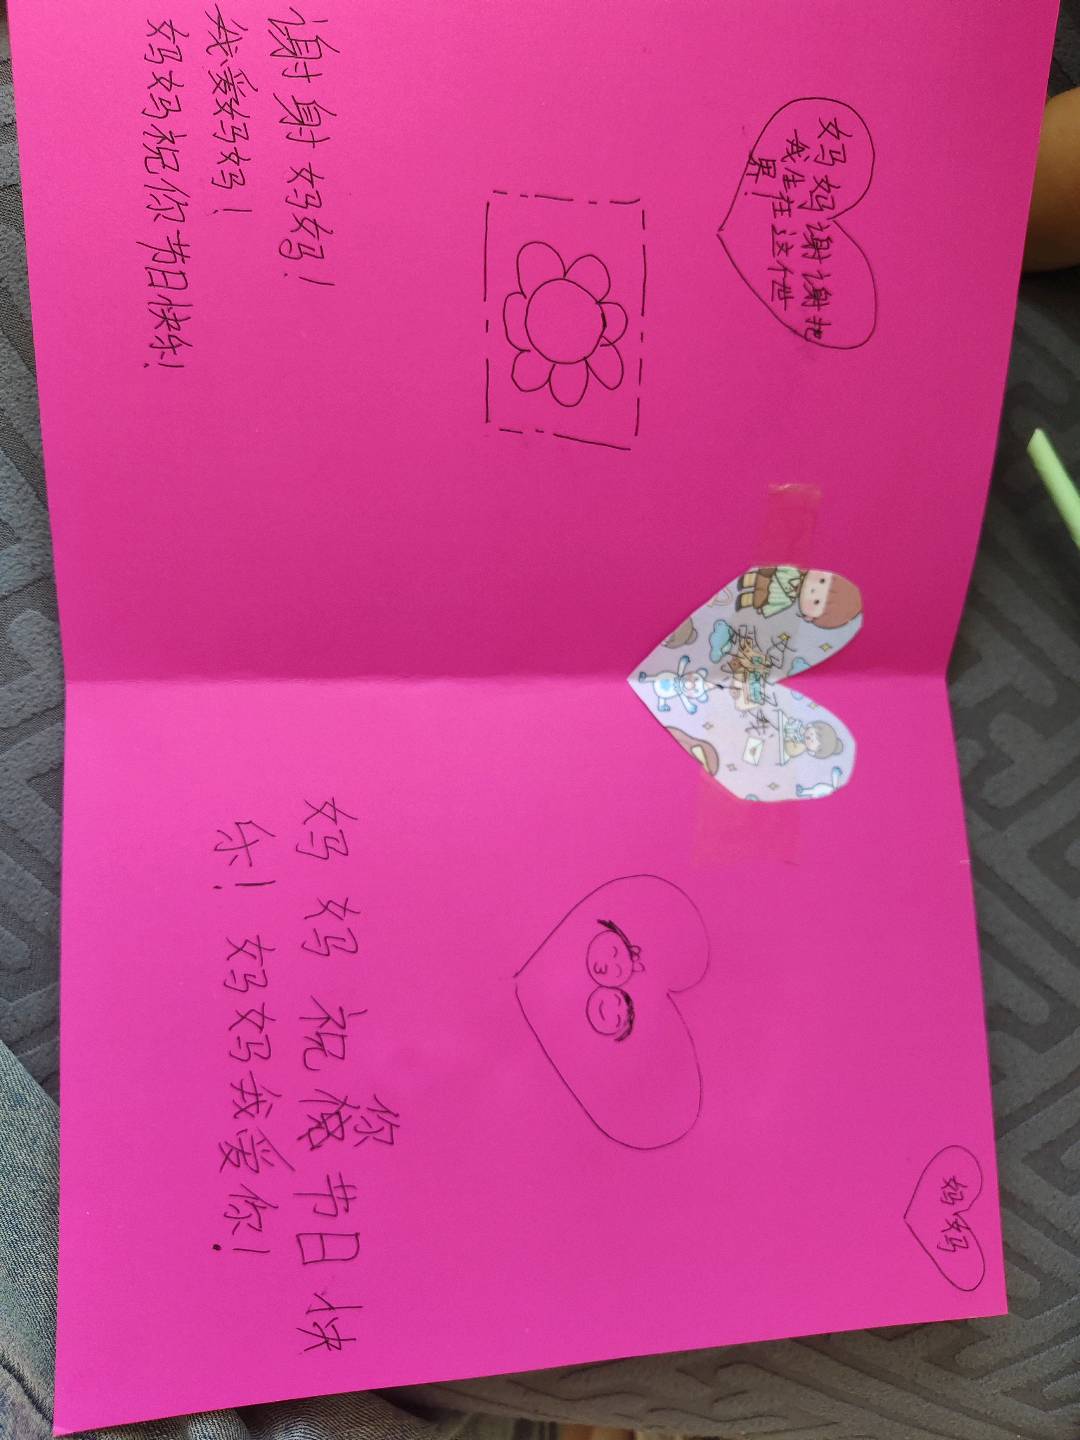 妈妈谢谢把
我生在这个世
界!
谢射妈妈!
我爱妈妈!
妈妈祝你节日快乐!
妈妈
妈妈祝你节日快
乐!妈妈我爱你!